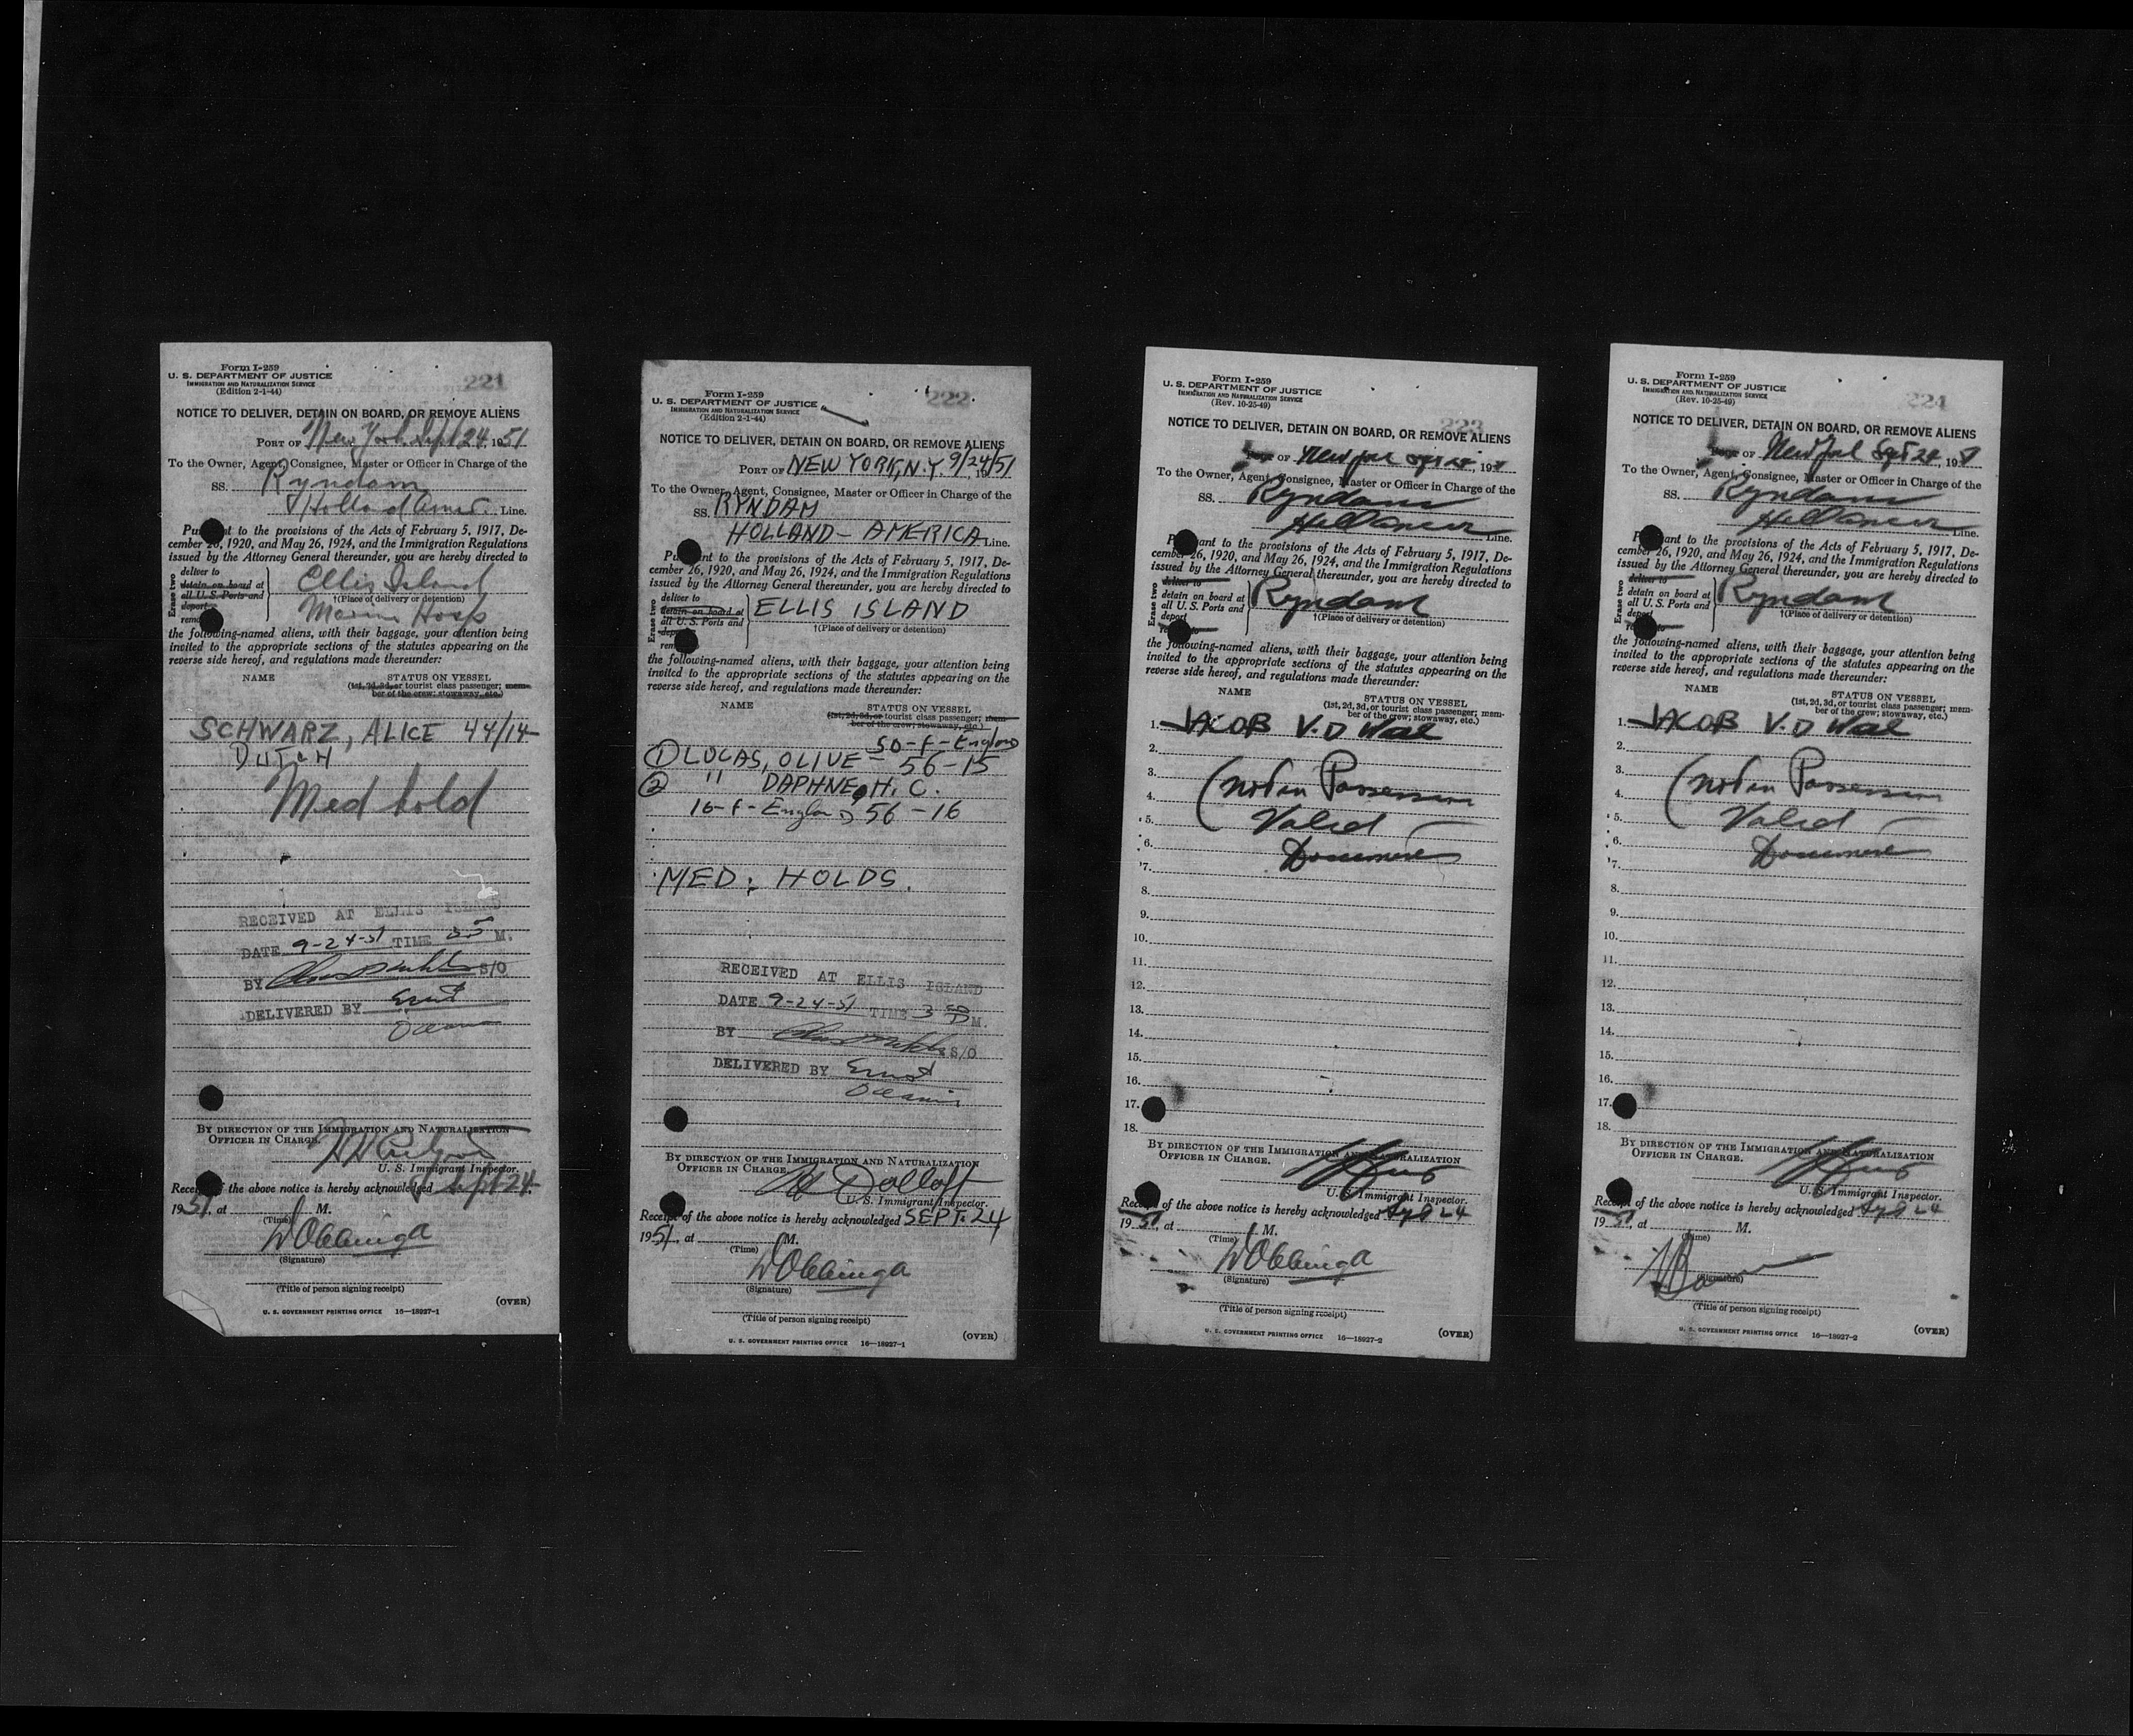 Form I-259
U. S. DEPARTMENT OF JUSTICE
IMMIGRATION AND NATURALIZATION SERVICE
(Edition 2-1-44)
221
NOTICE TO DELIVER, DETAIN ON BOARD, OR REMOVE ALIENS
PORT OF New York Sept 24, 1951
To the Owner, Agent, Consignee, Master or Officer in Charge of the
SS. Ryndam
Holland Amer. Line.
Pu nt to the provisions of the Acts of February 5, 1917, De-
cember 26, 1920, and May 26, 1924, and the Immigration Regulations
issued by the Attorney General thereunder, you are hereby directed to
Erase two
deliver to
detain on board at
all U. S. Ports and
deport
remo
Ellis Island
†(Place of delivery or detention)
Marine Hosp
the following-named aliens, with their baggage, your attention being
invited to the appropriate sections of the statutes appearing on the
reverse side hereof, and regulations made thereunder:
NAME
STATUS ON VESSEL
(1st, 2d, 3d, or tourist class passenger; mem-
ber of the crew; stowaway, etc.)
SCHWARZ, ALICE 44/14
DUTCH
Med hold
RECEIVED AT ELLIS ISLAND
DATE 9-24-51 TIME M.
BY S/O
DELIVERED BY Ernst
BY DIRECTION OF THE IMMIGRATION AND NATURALIZATION
OFFICER IN CHARGE.
U. S. Immigrant Inspector.
Receipt of the above notice is hereby acknowledged Sept 24
1951, at M.
(Time)
(Signature)
(Title of person signing receipt)
(OVER)
U. S. GOVERNMENT PRINTING OFFICE 16—18927-1
Form I-259
U. S. DEPARTMENT OF JUSTICE
IMMIGRATION AND NATURALIZATION SERVICE
(Edition 2-1-44)
222
NOTICE TO DELIVER, DETAIN ON BOARD, OR REMOVE ALIENS
PORT OF NEW YORK, N.Y. 9/24/51
To the Owner, Agent, Consignee, Master or Officer in Charge of the
SS. RYNDAM
HOLLAND-AMERICA Line.
Pu nt to the provisions of the Acts of February 5, 1917, De-
cember 26, 1920, and May 26, 1924, and the Immigration Regulations
issued by the Attorney General thereunder, you are hereby directed to
Erase two
deliver to
detain on board at
all U. S. Ports and
deport
rem
ELLIS ISLAND
†(Place of delivery or detention)
the following-named aliens, with their baggage, your attention being
invited to the appropriate sections of the statutes appearing on the
reverse side hereof, and regulations made thereunder:
NAME
STATUS ON VESSEL
(1st, 2d, 3d, or tourist class passenger; mem-
ber of the crew; stowaway, etc.)
50-f-England
① LUCAS, OLIVE - 56-15
② " DAPHNE, H. C.
16-f-England 56-16
MED: HOLDS.
RECEIVED AT ELLIS ISLAND
DATE 9-24-51 TIME 3 M.
BY S/O
DELIVERED BY Ernst
BY DIRECTION OF THE IMMIGRATION AND NATURALIZATION
OFFICER IN CHARGE.
U. S. Immigrant Inspector.
Receipt of the above notice is hereby acknowledged SEPT. 24
1951, at M.
(Time)
(Signature)
(Title of person signing receipt)
(OVER)
U. S. GOVERNMENT PRINTING OFFICE 16—18927-1
Form I-259
U. S. DEPARTMENT OF JUSTICE
IMMIGRATION AND NATURALIZATION SERVICE
(Rev. 10-25-49)
223
NOTICE TO DELIVER, DETAIN ON BOARD, OR REMOVE ALIENS
PORT OF New York Sept 24, 1951
To the Owner, Agent, Consignee, Master or Officer in Charge of the
SS. Ryndam
Line.
P ant to the provisions of the Acts of February 5, 1917, De-
cember 26, 1920, and May 26, 1924, and the Immigration Regulations
issued by the Attorney General thereunder, you are hereby directed to
Erase two
deliver to
detain on board at
all U. S. Ports and
deport
Ryndam
†(Place of delivery or detention)
the following-named aliens, with their baggage, your attention being
invited to the appropriate sections of the statutes appearing on the
reverse side hereof, and regulations made thereunder:
NAME
STATUS ON VESSEL
(1st, 2d, 3d, or tourist class passenger; mem-
ber of the crew; stowaway, etc.)
1. JACOB V.D Wal
2.
3. (Not in Possession
4.
5. Valid
6. Document
7.
8.
9.
10.
11.
12.
13.
14.
15.
16.
17.
18.
BY DIRECTION OF THE IMMIGRATION AND NATURALIZATION
OFFICER IN CHARGE.
U. S. Immigrant Inspector.
Receipt of the above notice is hereby acknowledged Sept 24
1951, at M.
(Time)
(Signature)
(Title of person signing receipt)
U. S. GOVERNMENT PRINTING OFFICE 16—18927-2 (OVER)
Form I-259
U. S. DEPARTMENT OF JUSTICE
IMMIGRATION AND NATURALIZATION SERVICE
(Rev. 10-25-49)
224
NOTICE TO DELIVER, DETAIN ON BOARD, OR REMOVE ALIENS
PORT OF New York Sept 24, 1951
To the Owner, Agent, Consignee, Master or Officer in Charge of the
SS. Ryndam
Line.
P ant to the provisions of the Acts of February 5, 1917, De-
cember 26, 1920, and May 26, 1924, and the Immigration Regulations
issued by the Attorney General thereunder, you are hereby directed to
Erase two
deliver to
detain on board at
all U. S. Ports and
deport
Ryndam
†(Place of delivery or detention)
the following-named aliens, with their baggage, your attention being
invited to the appropriate sections of the statutes appearing on the
reverse side hereof, and regulations made thereunder:
NAME
STATUS ON VESSEL
(1st, 2d, 3d, or tourist class passenger; mem-
ber of the crew; stowaway, etc.)
1. JACOB V.D Wal
2.
3. (Not in Possession
4.
5. Valid
6. Document
7.
8.
9.
10.
11.
12.
13.
14.
15.
16.
17.
18.
BY DIRECTION OF THE IMMIGRATION AND NATURALIZATION
OFFICER IN CHARGE.
U. S. Immigrant Inspector.
Receipt of the above notice is hereby acknowledged Sept 24
1951, at M.
(Time)
(Signature)
(Title of person signing receipt)
U. S. GOVERNMENT PRINTING OFFICE 16—18927-2 (OVER)